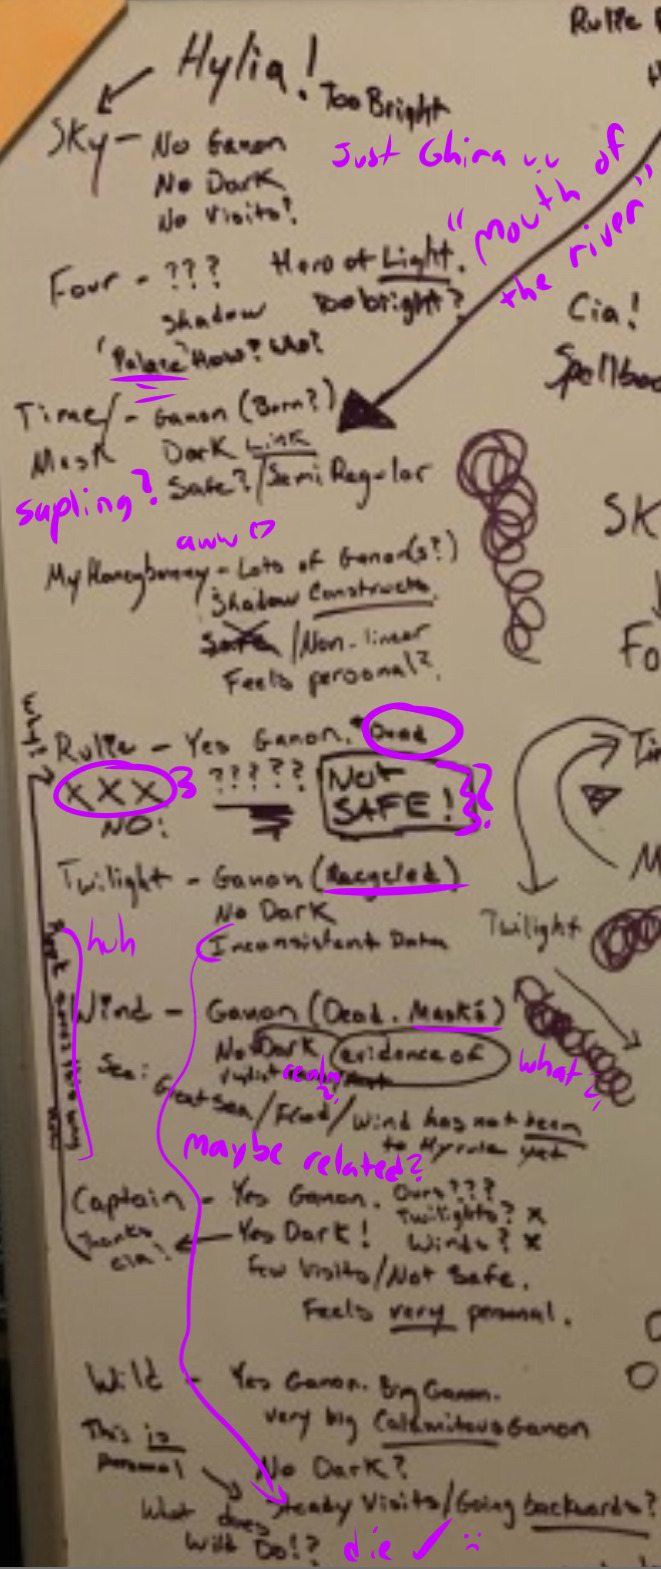 Hylia!
Too Bright
Sky - No Ganon
No Dark
No Visits?
Just Ghira
"mouth of
the river"
Four - ??? Hero of Light.
Shadow Too bright?
'Palace' How? Who?
Cia!
Time/ - Ganon (Born?)
Mask Dark Link
Safe?/Semi Regular
sapling?
aww
My Honeybunny - Lots of Ganon(s?)
Shadow Constructs.
Safe /Non-linear
Feels personal?
Why?
Rulie - Yes Ganon. *Dead
XXX ????? Not
SAFE!
NO!
Twilight - Ganon (Recycled)
No Dark
Inconsistent Data
huh
Twilight
Wind - Ganon (Dead. Masks)
No Dark evidence of
realm
what?
See: Great Sea/Flood/Wind has not been
to Hyrule yet
maybe related?
Captain - Yes Ganon. Ours???
Twilights? X
Yes Dark! Winds? X
Thanks
Cia!
Few Visits/Not Safe.
Feels very personal.
Wild - Yes Ganon. Big Ganon.
very big Calamitous Ganon
This is
personal
No Dark?
Steady Visits/Going backwards?
What does
Wild Do!?
die ✓ :(